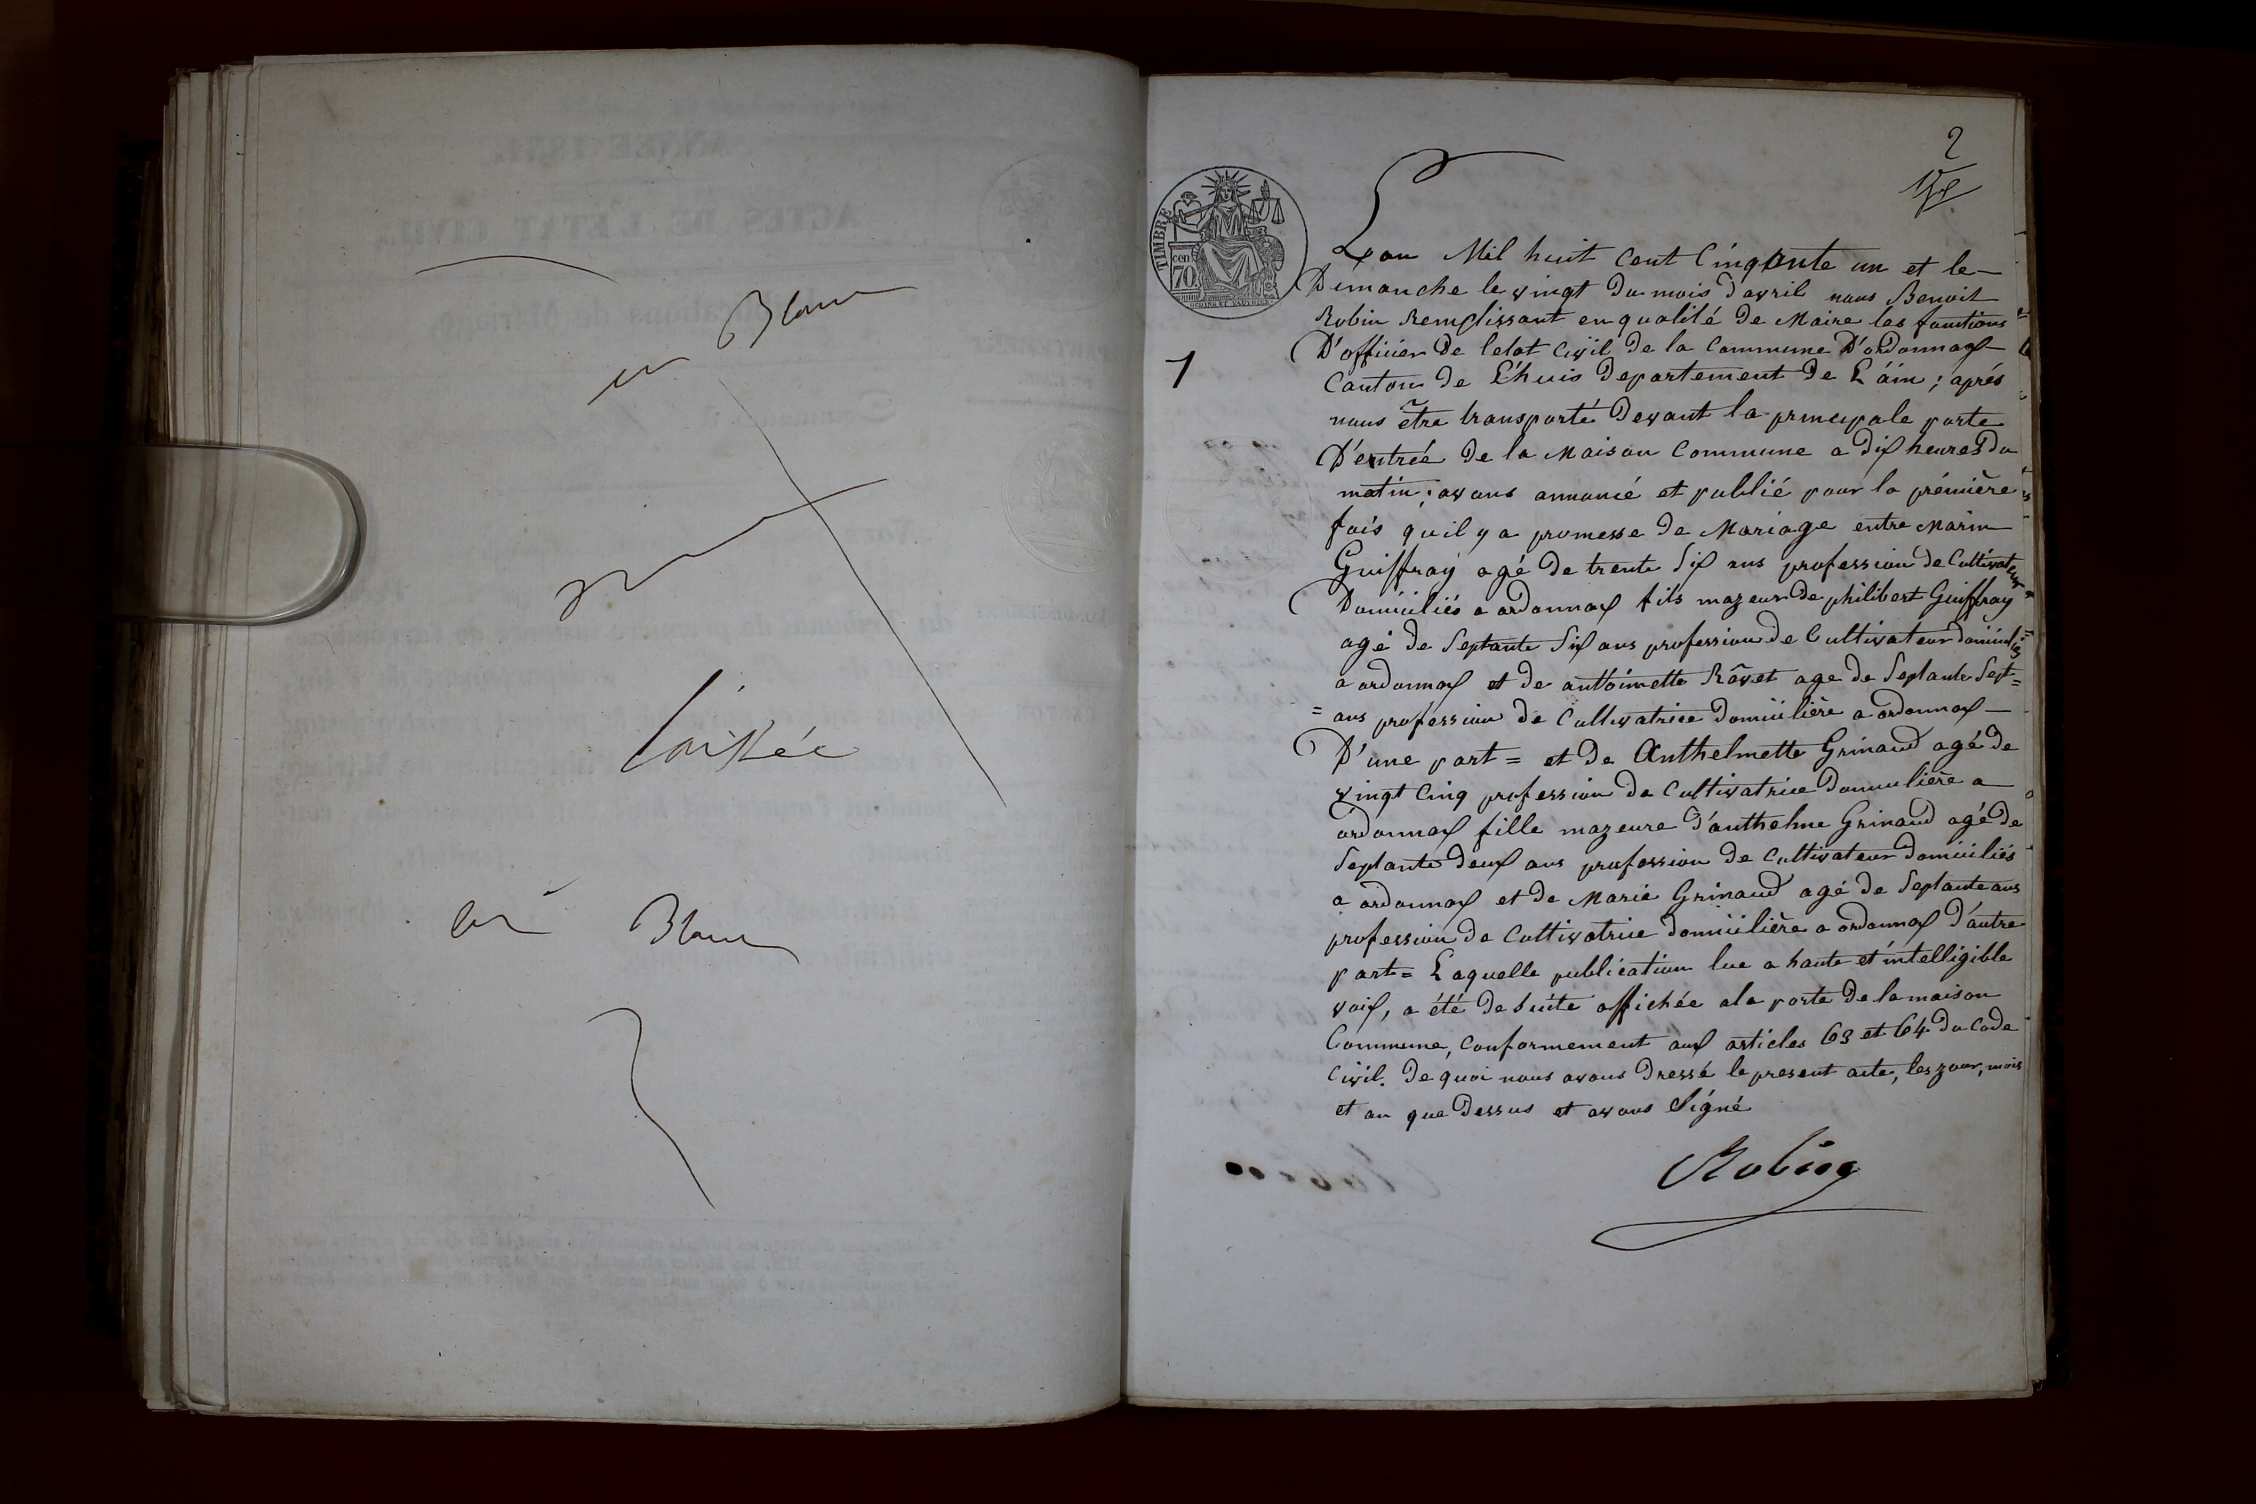 en Blanc
Laissée
en Blanc
2
TIMBRE
cen.
70
1
Lan Mil huit Cent Cinqante un et le
Dimanche le vingt du mois d'avril nous Benoit
Robin Remplissant en qualité de Maire les fonctions
D'officier de l'etat Civil de la Commune D'ordonnax
Canton de L'huis Departement de L'áin ; aprés
nous être transporté Devant la principale porte
D'entrée de la Maison Commune a dix heures Du
matin ; avons annoncé et publié pour la prémière
fois qu'il y a promesse de Mariage entre Marin
Guiffray agé de trente Six ans profession de Cultivateur
Domiciliés a ordonnax fils mazeur de philibert Guiffray
agé de Septante Six ans profession de Cultivateur domicilies
a ordonnax et de anttoinette Râvet age de Septante Sept =
= ans profession de Cultivatrice domicilière a ordonnax
D'une part = et de Anthelmette Grinaud agé de
vingt Cinq profession de Cultivatrice domicilière a
ordonnax fille mazeure d'anthelme Grinaud agé de
Septante deux ans profession de Cultivateur domiciliés
a ordonnax et de Marie Grinaud agé de Septante ans
profession de Cultivatrice domicilière a ordonnax d'autre
part = Laquelle publication lue a haute et intelligible
voix, a été de Suite affichée ala porte de la maison
Commune, Conformement aux articles 63 et 64 du Code
Civil. de quoi nous avons Dressé le present acte, les zour, mois
et an que Dessus et avons Signé
Robin